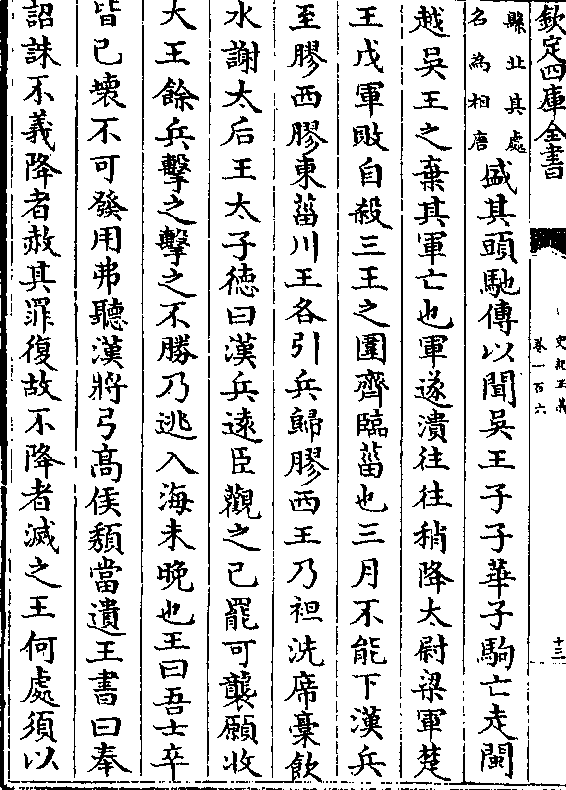 欽定四庫全書
史記正義
卷一百六
十三
縣北其處
名為相唐
盛其頭馳傳以聞吳王子子華子駒亡走閩
越吳王之棄其軍亡也軍遂潰往往稍降太尉梁軍楚
王戊軍敗自殺三王之圍齊臨菑也三月不能下漢兵
至膠西膠東菑川王各引兵歸膠西王乃袒洗席稾飲
水謝太后王太子徳曰漢兵遠臣觀之已罷可襲願收
大王餘兵擊之擊之不勝乃逃入海未晚也王曰吾士卒
皆已壊不可發用弗聽漢將弓髙侯頽當遺王書曰奉
詔誅不義降者赦其罪復故不降者滅之王何處須以